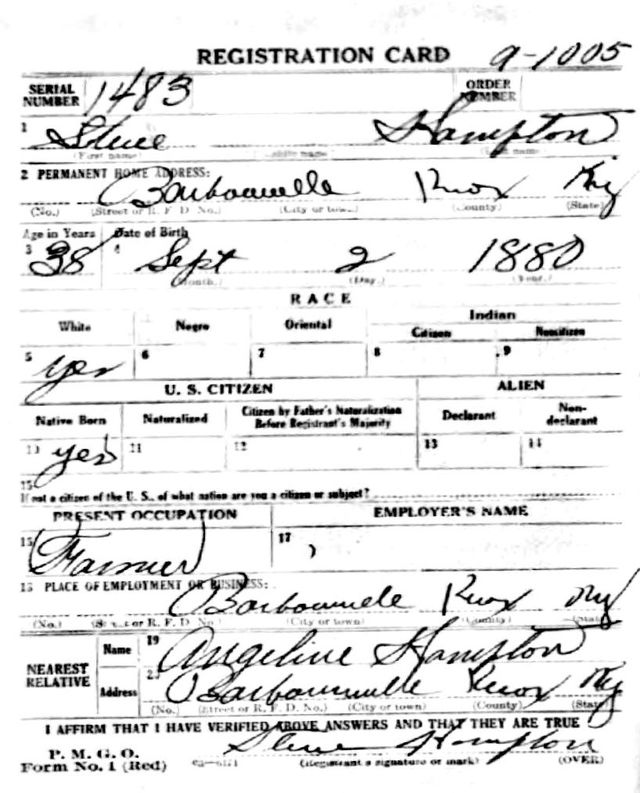 REGISTRATION CARD 9-1005
SERIAL NUMBER 1483 ORDER NUMBER
1 Steve Hampton
(First name) (Middle name) (Last name)
2 PERMANENT HOME ADDRESS:
Barbourville Knox Ky
(No.) (Street or R. F. D. No.) (City or town) (County) (State)
Age in Years Date of Birth
3 38 4 Sept 2 1880
(Month.) (Day.) (Year.)
RACE
White Negro Oriental Indian
Citizen Noncitizen
5 yes 6 7 8 9
U. S. CITIZEN ALIEN
Native Born Naturalized Citizen by Father's Naturalization Before Registrant's Majority Declarant Non-declarant
10 yes 11 12 13 14
15
If not a citizen of the U. S., of what nation are you a citizen or subject?
PRESENT OCCUPATION EMPLOYER'S NAME
16 Farmer 17
18 PLACE OF EMPLOYMENT OR BUSINESS:
Barbourville Knox Ky
(No.) (Street or R. F. D. No.) (City or town) (County) (State)
NEAREST RELATIVE Name 19 Angeline Hampton
Address 20 Barbourville Knox Ky
(No.) (Street or R. F. D. No.) (City or town) (County) (State)
I AFFIRM THAT I HAVE VERIFIED ABOVE ANSWERS AND THAT THEY ARE TRUE
P. M. G. O.
Form No. 1 (Red) Steve Hampton
(Registrant's signature or mark) (OVER)